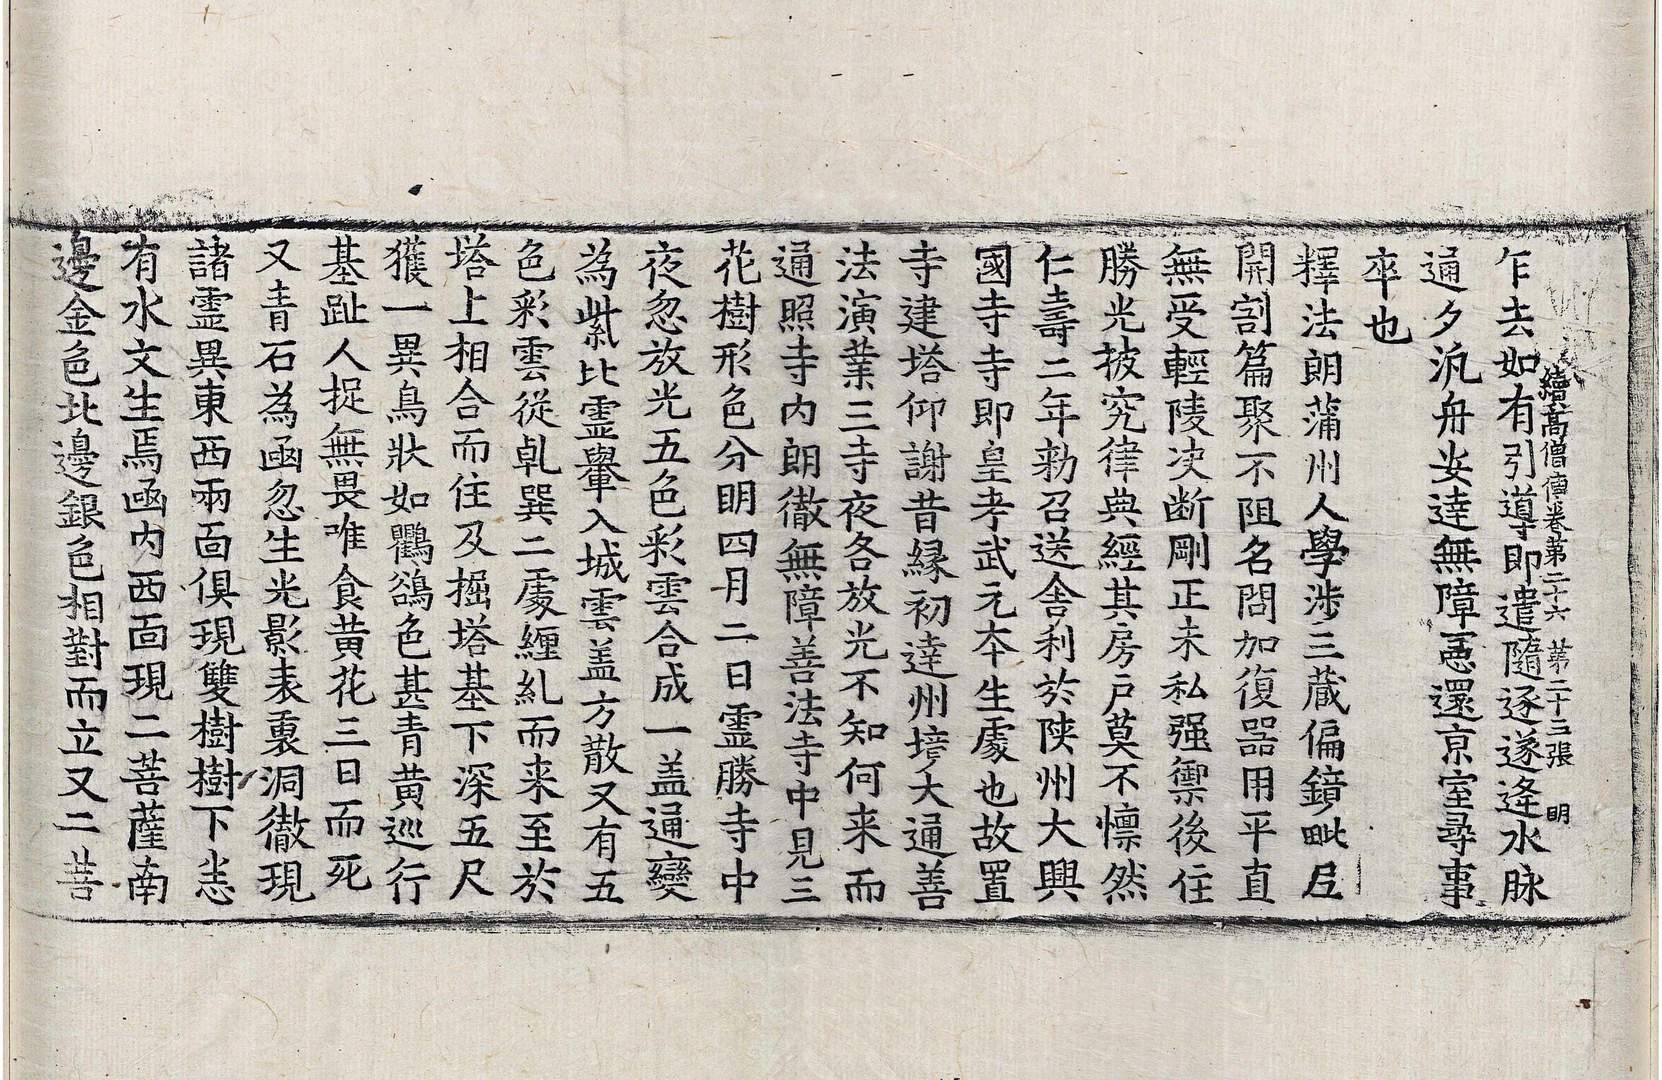 續高僧傳卷第二十六 第二十三張 明
乍去如有引導即遣隨逐遂逢水脉
通夕汎舟安達無障悉還京室尋事
卒也
釋法朗蒲州人學涉三蔵偏鏡毗尼
開割篇聚不阻名問加復器用平直
無受輕陵决断剛正未私强禦後住
勝光披究律典經其房戸莫不懔然
仁壽二年勅召送舍利於陕州大興
國寺寺即皇考武元本生處也故置
寺建塔仰謝昔縁初達州境大通善
法演業三寺夜各放光不知何来而
通照寺内朗徹無障善法寺中見三
花樹形色分明四月二日靈勝寺中
夜忽放光五色彩雲合成一盖通變
為紫比靈轝入城雲盖方散又有五
色彩雲從乹巽二處纏糺而来至於
塔上相合而住及掘塔基下深五尺
獲一異鳥狀如鸜鵒色甚青黄巡行
基趾人捉無畏唯食黄花三日而死
又青石為函忽生光影表裏洞徹現
諸靈異東西兩面俱現雙樹樹下悉
有水文生焉函内西面現二菩薩南
邊金色北邊銀色相對而立又二菩